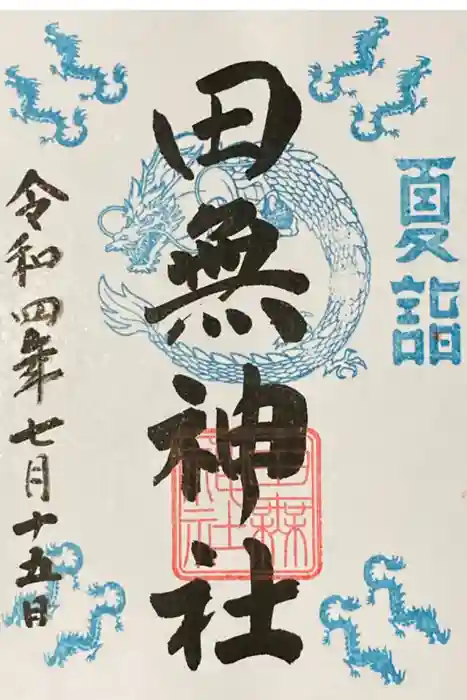 夏詣
田無神社
田無神社
令和四年七月十五日